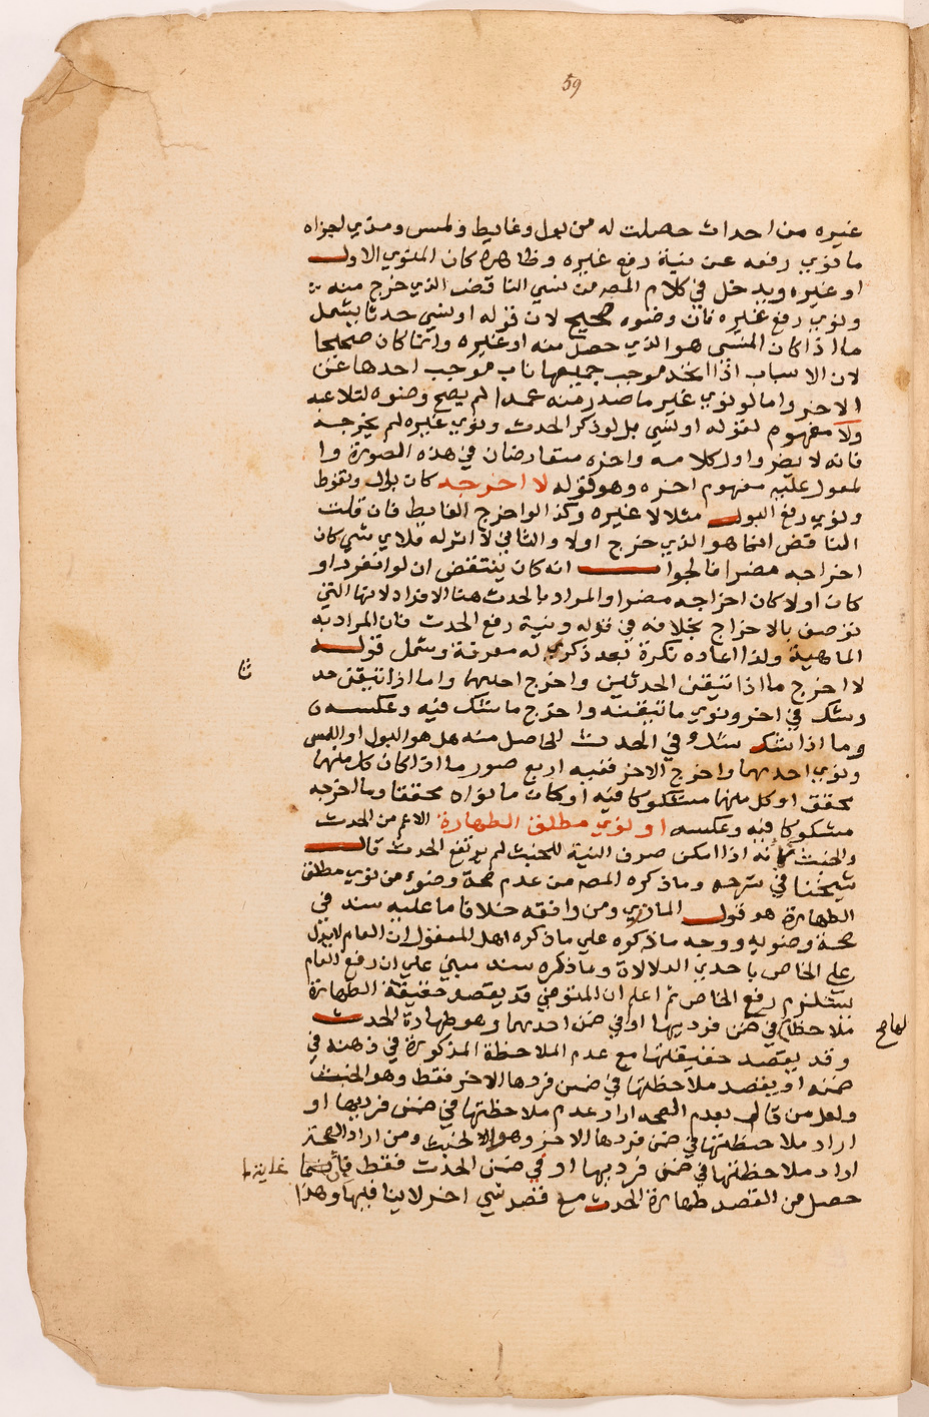 59
غيره من احداث حصلت له من بول وغايط ولمس ومذي اجزاه
ما نوي رفعه عن نية رفع غيره وظاهره كان المنوي الاول
او غيره ويدخل في كلام المصه من نسي الناقض الذي خرج منه
ونوي رفع غيره فان وضوه صحيح لان قوله او نسي حدثا يشمل
ما اذا كان المنسي هو الذي حصل منه او غيره وانما كان صحيحا
لان الاسباب اذا اتحد موجب جميعها ناب موجب احدها عن
الاخر واما لو نوي غير ما صدر منه عمدا لم يصح وضوه لتلاعبه
ولا مفهوم لقوله او نسي بل لو ذكر الحدث ونوي غيره لم يخرجه
فانه لا يضر واول كلامه واخره متعارضان في هذه الصورة وا
لمعول عليه مفهوم اخره وهو قوله لا اخرجه كان بال وتغوط
ونوي رفع البول مثلا لا غيره وكذا لو اخرج الغايط فان قلت
الناقض انما هو الذي خرج اولا والثاني لا اثر له فلاي شي كان
اخراجه مضرا فالجواب انه كان ينتقض ان لو انفرد او
كان اولا كان اخراجه مضرا والمراد بالحدث هنا الافراد لانها التي
توصف بالاخراج بخلافه في قوله ونية رفع الحدث فان المراد به
الماهية ولذا اعاده نكرة بعد ذكره له معرفة وشمل قوله
لا اخرج ما اذا تيقن الحدثين واخرج احدهما واما اذا تيقن حد
وشك في اخر ونوي ما تيقنه واخرج ما شك فيه وعكسه
وما اذا شك في الحدث الحاصل منه هل هو البول او اللمس
ونوي احدهما واخرج الاخر ففيه اربع صور ما اذا كان كل منهما
محقق او كل منهما مشكوكا فيه او كان ما نواه محققا وما اخرجه
مشكوكا فيه وعكسه او نوي مطلق الطهارة الاعم من الحدث
والخبث لانه اذا امكن صرف النية للخبث لم يرتفع الحدث قال
شيخنا في شرحه وما ذكره المصه من عدم صحة وضوء من نوي مطلق
الطهارة هو قول المازري ومن وافقه خلافا ما عليه سند في
صحة وضويه ووجه ما ذكروه علي ما ذكره اهل المعقول ان العام لا يدل
علي الخاص باحدي الدلالات وما ذكره سند مبني علي ان رفع العام
يستلزم رفع الخاص ثم اعلم ان المتوضي قد يقصد حقيقة الطهارة
ملاحظا في ضمن فرديها او في ضمن احدهما وهو طهارة الحدث
وقد يقصد حقيقتها مع عدم الملاحظة المذكورة في ذهنه في
ضمنه او يقصد ملاحظتها في ضمن فردها الاخر فقط وهو الخبث
ولعل من قال بعدم الصحه اراد عدم ملاحظتها في ضمن فرديها او
اراد ملاحظتها في ضمن فردها الاخر وهو الخبث ومن اراد الصحة
اراد ملاحظتها في ضمن فرديها او في ضمن الحدث فقط غايتها
حصل من القصد طهارة الحدث مع قصد شي اخر لا ينافيها وهذا